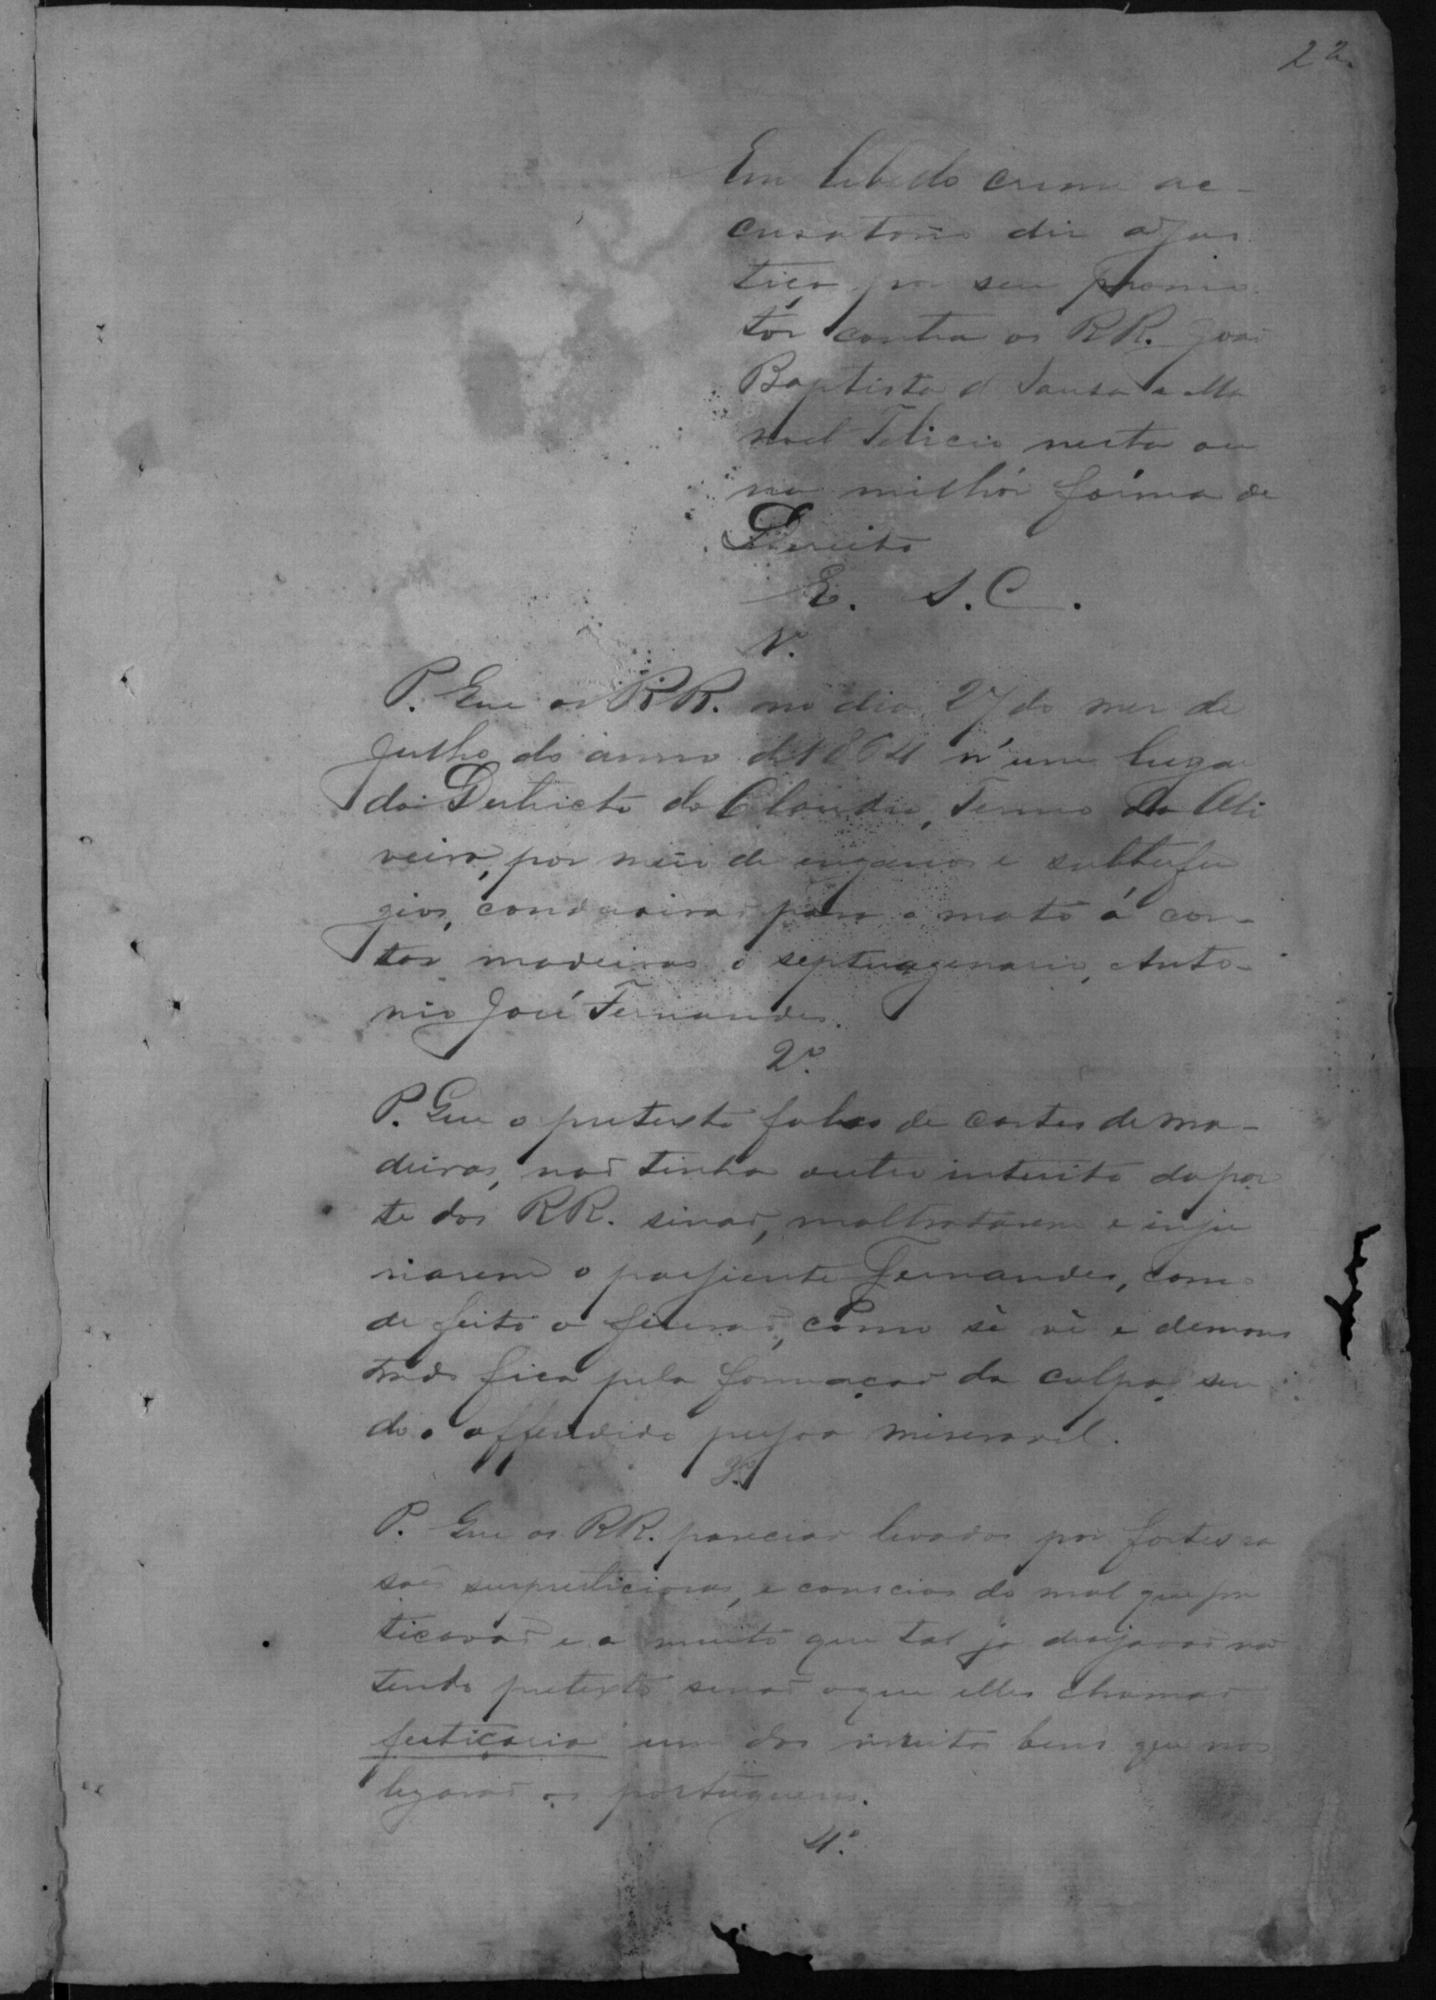 22
Em libello crime ac-
cusatorio diz a Jus
tiça por seu promo
tor contra os RR. João
Baptista de Sousa e Ma
noel Felicio nesta ou
na milhór fórma de
Dereito
E. S. C.
1º
P. Que os RR. no dia 27 do mez de
Julho do anno de 1864 n'um lugar
do Destricto do Claudio, Termo da Oli
veira, por meio de enganos e subterfu
gios, condusirão para o mato á cor-
tar madeiras o septuagenario, Anto-
nio José Fernandes.
2º
P. Que o pretexto falso de cortes de ma-
deiras, não tinha outro intuito da par
te dos RR. sinão, maltratarem e inju
riarem o paciente Fernandes, como
de feito o fiserão, como sè vê e demons
trado fica pela formação da culpa, sen
do o offendido pessoa miseravel.
3º
P. Que os RR. parecião levados por fortes ra
sões surpresticiosas, e conscios do mal que pra
ticavão e a muito que tal já desejavão não
tendo pretexto senão o que elles chamão
feitiçaria um dos muitos bens que nos
legarão os portugueses.
4º